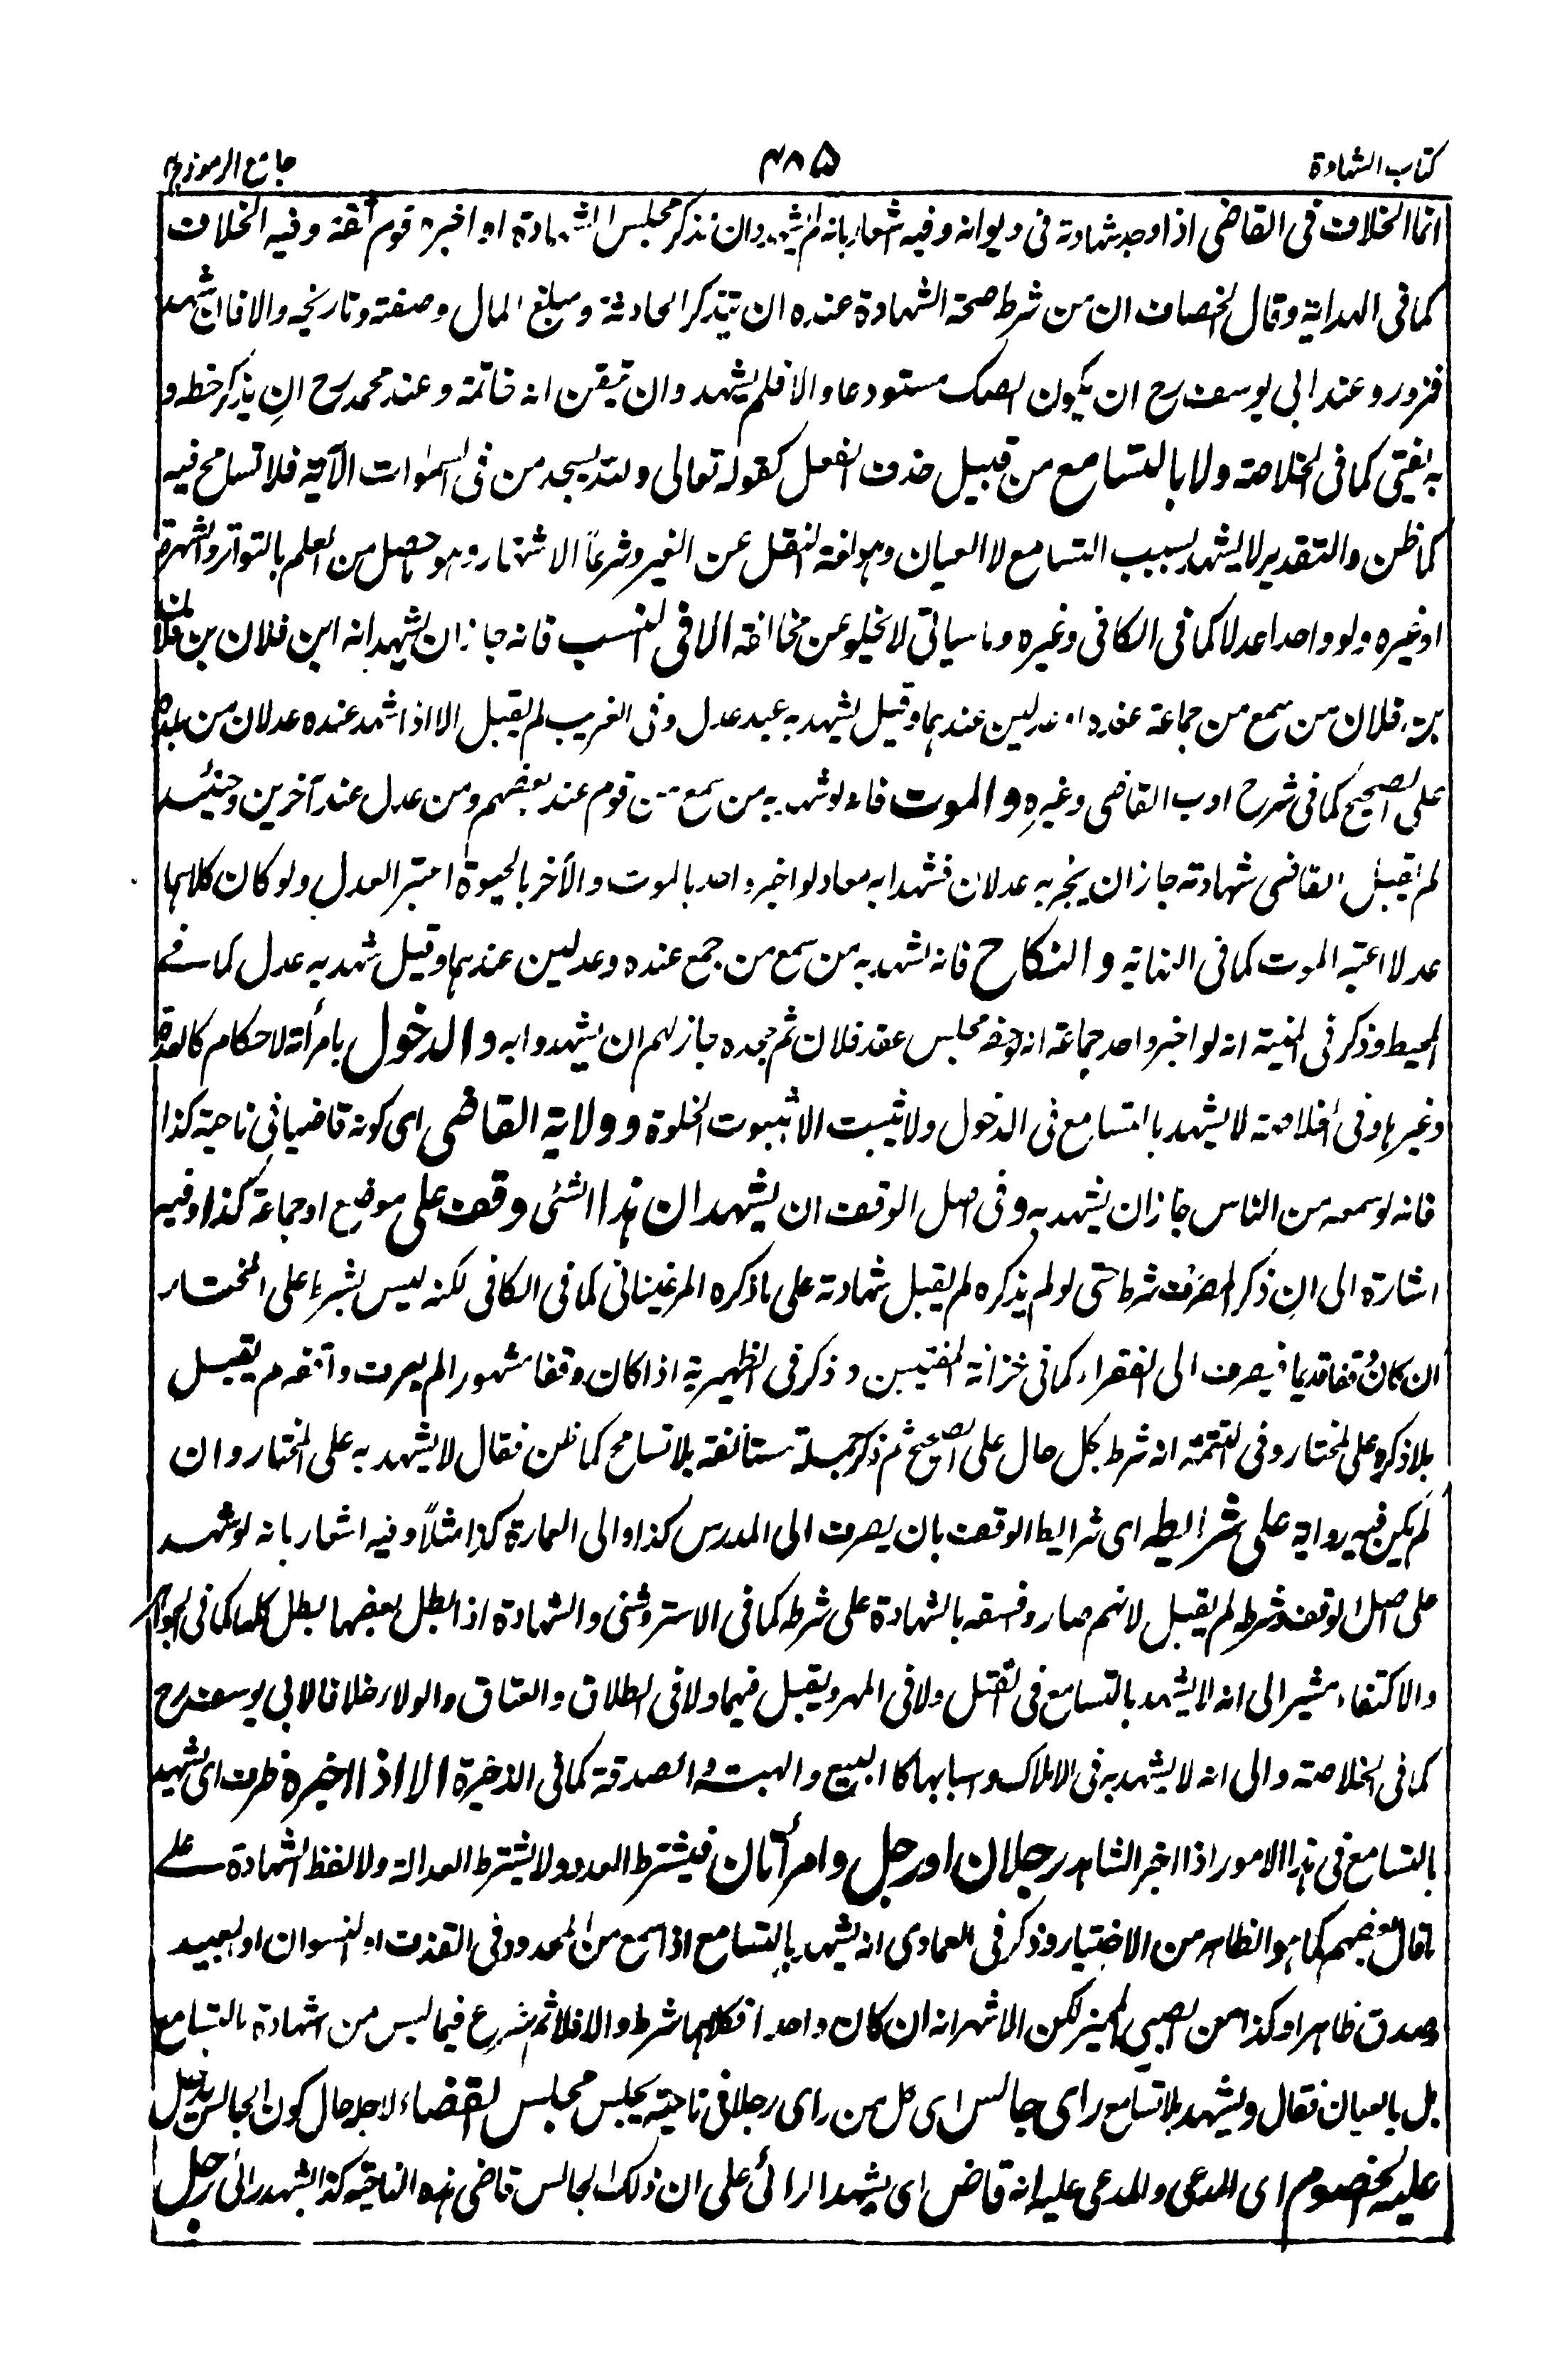 كتاب الشهادة ٤٨٥ جامع الرموز ج٢
انما الخلاف فى القاضى اذا وجد شهادته فى ديوانه وفيه اشعار بانه لم يشهد وان تذكر مجلس الشهادة او اخبره قوم ثقة وفيه الخلاف
كما فى الهداية وقال الخصاف ان من شرط صحة الشهادة عنده ان يتذكر الحادثة ومبلغ المال وصفته وتاريخه والا فان شهد
فزور وعند ابى يوسف رح ان يكون الصك مستودعا والا فلم يشهد وان تيقن انه خاتمه وعند محمد رح ان يذكر خطه و
به يفتى كما فى الخلاصة ولا بالتسامع من قبيل حذف الفعل كقوله تعالى ولله يسجد من فى السموات الآية فلا تسامح فيه
كما ظن والتقدير لا يشهد بسبب التسامع لا العيان وهو لغة النقل عن الغير وشرعاً الاشتهار وهو حاصل من العلم بالتواتر والشهرة
او غيره ولو واحدا عدلا كما فى الكافى وغيره وما سياتى لا يخلو عن مخالفة الا فى النسب فانه جاز ان يشهد انه ابن فلان بن فلان
بن فلان من سمع من جماعة عنده او عدلين عندهما وقيل يشهد به عبد عدل وفى الغريب لم يقبل الا اذا شهد عنده عدلان من بلده
على الصحيح كما فى شرح ادب القاضى وغيره والموت فانه لو شهد به من سمع من قوم عند بعضهم ومن عدل عند آخرين وحينئذ
لم يقبل القاضى شهادته جاز ان يخبر به عدلان فشهدا به معا ولو اخبر واحد بالموت والآخر بالحيوة اعتبر العدل ولو كان كلاهما
عدلا اعتبر الموت كما فى النهاية والنكاح فانه يشهد به من سمع من جمع عنده وعدلين عندهما وقيل شهد به عدل كما فى
المحيط وذكر فى المنية انه لو اخبر واحد جماعة انه حضر مجلس عقد فلان ثم جحده جاز لهم ان يشهدوا به والدخول بامرأته لاحكام كالعدة
وغيرها وفى الخلاصة لا يشهد بالتسامع فى الدخول ولا يثبت الا بثبوت الخلوة وولاية القاضى اى كونه قاضيا فى ناحية كذا
فانه لو سمعه من الناس جاز ان يشهد به وفى اصل الوقف ان يشهد ان هذا الشئ وقف على موضع او جماعة كذا وفيه
اشارة الى ان ذكر المصرف شرط حتى لو لم يذكره لم يقبل شهادته على ما ذكره المرغينانى كما فى الكافى لكنه ليس بشرط على المختار
ان كان وقفا قديما فيصرف الى الفقراء كما فى خزانة المفتيين وذكر فى الظهيرية اذا كان وقفا مشهورا لم يعرف واقفه يقبل
بلا ذكره على المختار وفى التتمة انه شرط بكل حال على الصحيح ثم ذكر جملة مستأنفة بلا تسامح كما ظن فقال لا يشهد به على المختار وان
لم يكن فيه رواية على شرائطه اى شرايط الوقف بان يصرف الى المدرس كذا والى العمارة كذا مثلاً وفيه اشعار بانه لو شهد
على اصل الوقف وشرطه لم يقبل لانهم صاروا فسقة بالشهادة على شرطه كما فى الاستروشنى والشهادة اذا بطل بعضها بطل كلها كما فى الجواهر
والاكتفاء مشير الى انه لا يشهد بالتسامع فى القتل ولا فى المهر ويقبل فيهما ولا فى الطلاق والعتاق والولاء خلافا لابى يوسف رح
كما فى الخلاصة والى انه لا يشهد به فى الاملاك واسبابها كالبيع والهبة والصدقة كما فى الذخيرة الا اذا اخبره ظرف اى يشهد
بالتسامع فى هذا الامور اذا اخبر الشاهد رجلان او رجل وامرأتان فيشترط العدد ولا يشترط العدالة ولا لفظ الشهادة على
ما قال بعضهم كما هو الظاهر من الاختيار وذكر فى العمادى انه يشهد بالتسامع اذا سمع من المحدود فى القذف او النسوان او العبيد
وصدق ظاهرا وكذا من الصبى المميز لكن الاشهر انه ان كان واحدا فكلاهما شرط والا فلا ثم شرع فيما ليس من الشهادة بالتسامع
بل بالعيان فقال ويشهد بلا تسامع راى جالس اى كل من راى رجلا فى ناحية يجلس مجلس القضاء لاجله حال كون الجالس يدخل
عليه الخصوم اى المدعى والمدعى عليه انه قاض اى يشهد الرائى على ان ذلك الجالس قاضى هذه الناحية كذا يشهد رائى رجل